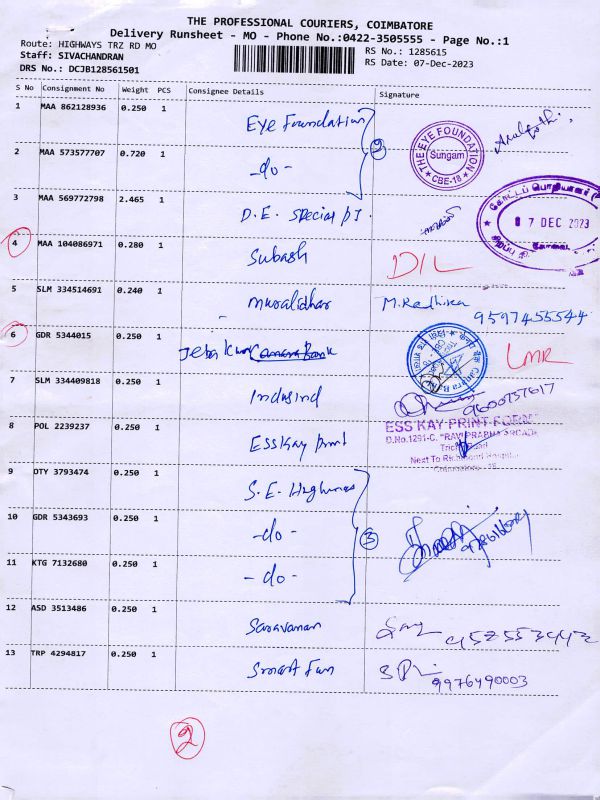 THE PROFESSIONAL COURIERS, COIMBATORE
Delivery Runsheet - MO - Phone No.:0422-3505555 - Page No.:1
Route: HIGHWAYS TRZ RD MO
RS No.: 1285615
Staff: SIVACHANDRAN
RS Date: 07-Dec-2023
DRS No.: DCJB128561501
S No Consignment No Weight PCS Consignee Details Signature
1 MAA 862128936 0.250 1 Eye Foundation
2 MAA 573577707 0.720 1 -do-
2
THE EYE FOUNDATION
Sungam
CBE-18
3 MAA 569772798 2.465 1 D.E. Special
கோட்டப் பொறியாளர்
0 7 DEC 2023
கோவை
4 MAA 104086971 0.280 1 Subash D/L
5 SLM 334514691 0.240 1 Muralidhar M. Radhika 9597455544
6 GDR 5344015 0.250 1 Canara Bank
7 SLM 334409818 0.250 1 Indusind 9600757617
8 POL 2239237 0.250 1 Ess Kay Print
ESS KAY PRINT FORM
D.No.1291-C, "RAVI PRABHA ARCADE
Next To
9 DTY 3793474 0.250 1 S.E. Highways
10 GDR 5343693 0.250 1 -do-
3
11 KTG 7132680 0.250 1 -do-
12 ASD 3513486 0.250 1 Saravanan
13 TRP 4294817 0.250 1 Smart Fun
9976490003
2